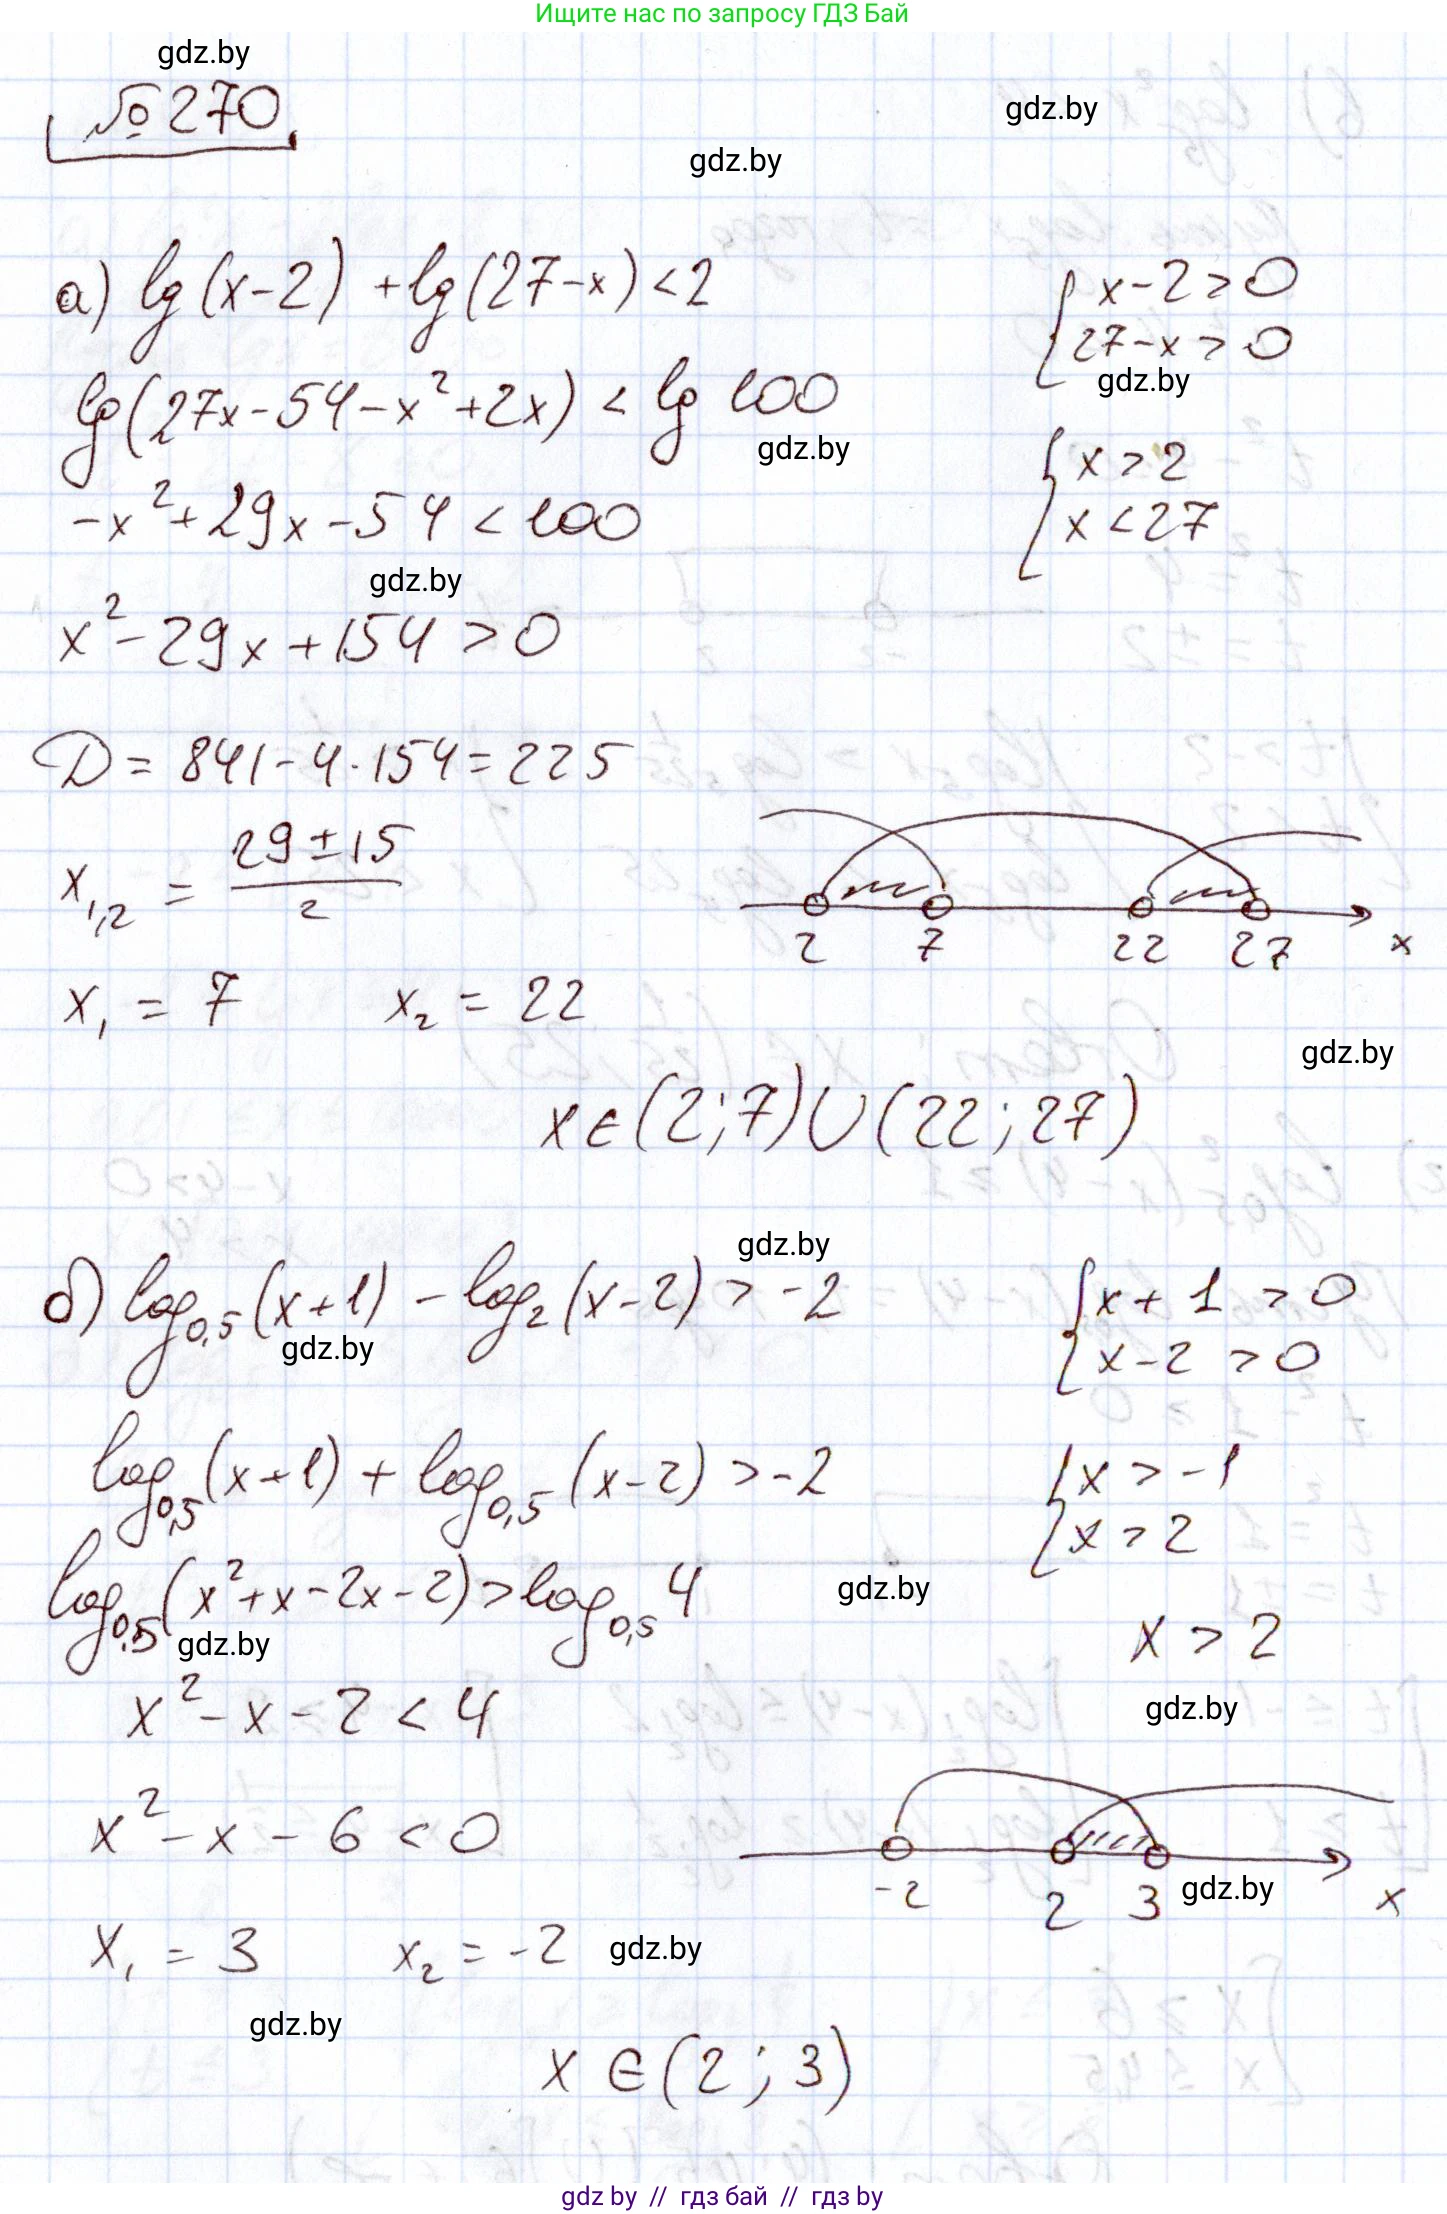 Ищите нас по запросу ГДЗ Бай
gdz.by
№ 270
gdz.by
gdz.by
а) lg(x-2) + lg(27-x) < 2
{ x-2 > 0
27-x > 0
gdz.by
lg(27x-54-x²+2x) < lg 100
gdz.by
{ x > 2
x < 27
-x²+29x-54 < 100
gdz.by
x²-29x+154 > 0
D = 841-4·154 = 225
x₁,₂ = (29±15)/2
2 7 22 27 x
x₁ = 7 x₂ = 22
gdz.by
x ∈ (2;7) ∪ (22;27)
gdz.by
б) log₀,₅(x+1) - log₂(x-2) > -2
{ x+1 > 0
x-2 > 0
gdz.by
log₀,₅(x+1) + log₀,₅(x-2) > -2
{ x > -1
x > 2
log₀,₅(x²+x-2x-2) > log₀,₅ 4
gdz.by
gdz.by
x > 2
x²-x-2 < 4
gdz.by
x²-x-6 < 0
-2 2 3 x
gdz.by
x₁ = 3 x₂ = -2
gdz.by
gdz.by
x ∈ (2; 3)
gdz by // гдз бай // гдз by